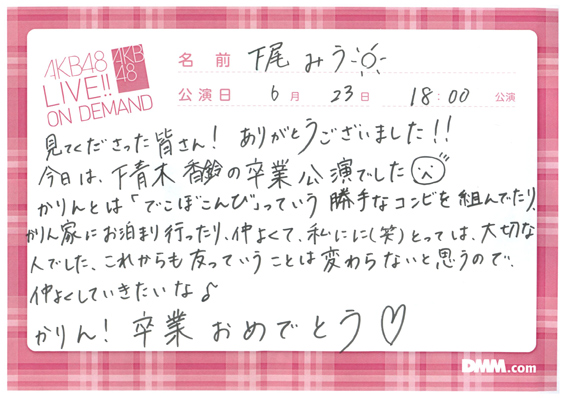 AKB48
LIVE!!
ON DEMAND
AKB
48
名前 下尾みう
公演日 6月 23日 18:00 公演
見てくださった皆さん! ありがとうございました!!
今日は、下青木香鈴の卒業公演でした
かりんとは「でこぼこんび」っていう勝手なコンビを組んでたり、
かりん家にお泊まり行ったり、仲よくて、私にに(笑)とっては、大切な
人でした、これからも友っていうことは変わらないと思うので、
仲よくしていきたいな♪
かりん! 卒業おめでとう♡
DMM.com